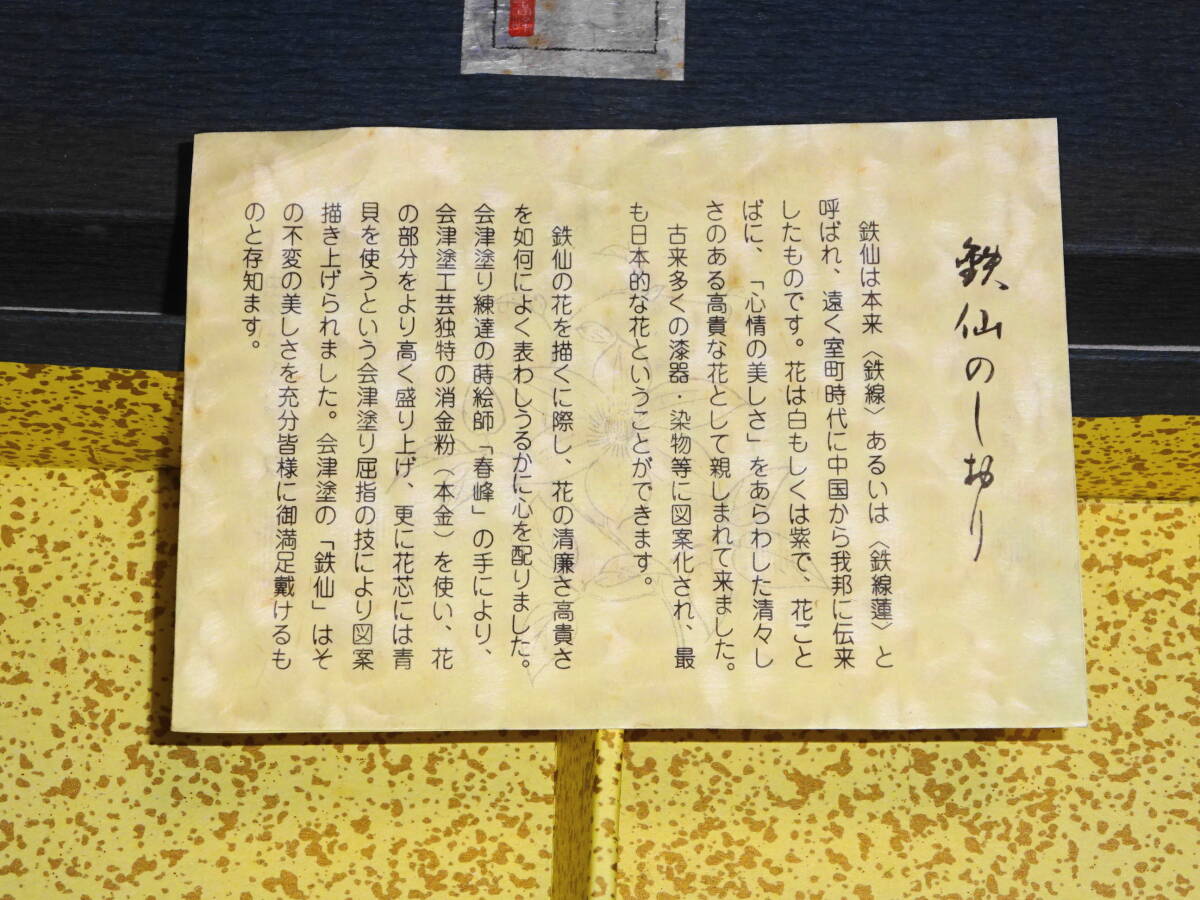 鉄仙のしおり
鉄仙は本来〈鉄線〉あるいは〈鉄線蓮〉と
呼ばれ、遠く室町時代に中国から我邦に伝来
したものです。花は白もしくは紫で、花こと
ばに、「心情の美しさ」をあらわした清々し
さのある高貴な花として親しまれて来ました。
古来多くの漆器・染物等に図案化され、最
も日本的な花ということができます。
鉄仙の花を描くに際し、花の清廉さ高貴さ
を如何によく表わしうるかに心を配りました。
会津塗り練達の蒔絵師「春峰」の手により、
会津塗工芸独特の消金粉（本金）を使い、花
の部分をより高く盛り上げ、更に花芯には青
貝を使うという会津塗り屈指の技により図案
描き上げられました。会津塗の「鉄仙」はそ
の不変の美しさを充分皆様に御満足戴けるも
のと存知ます。